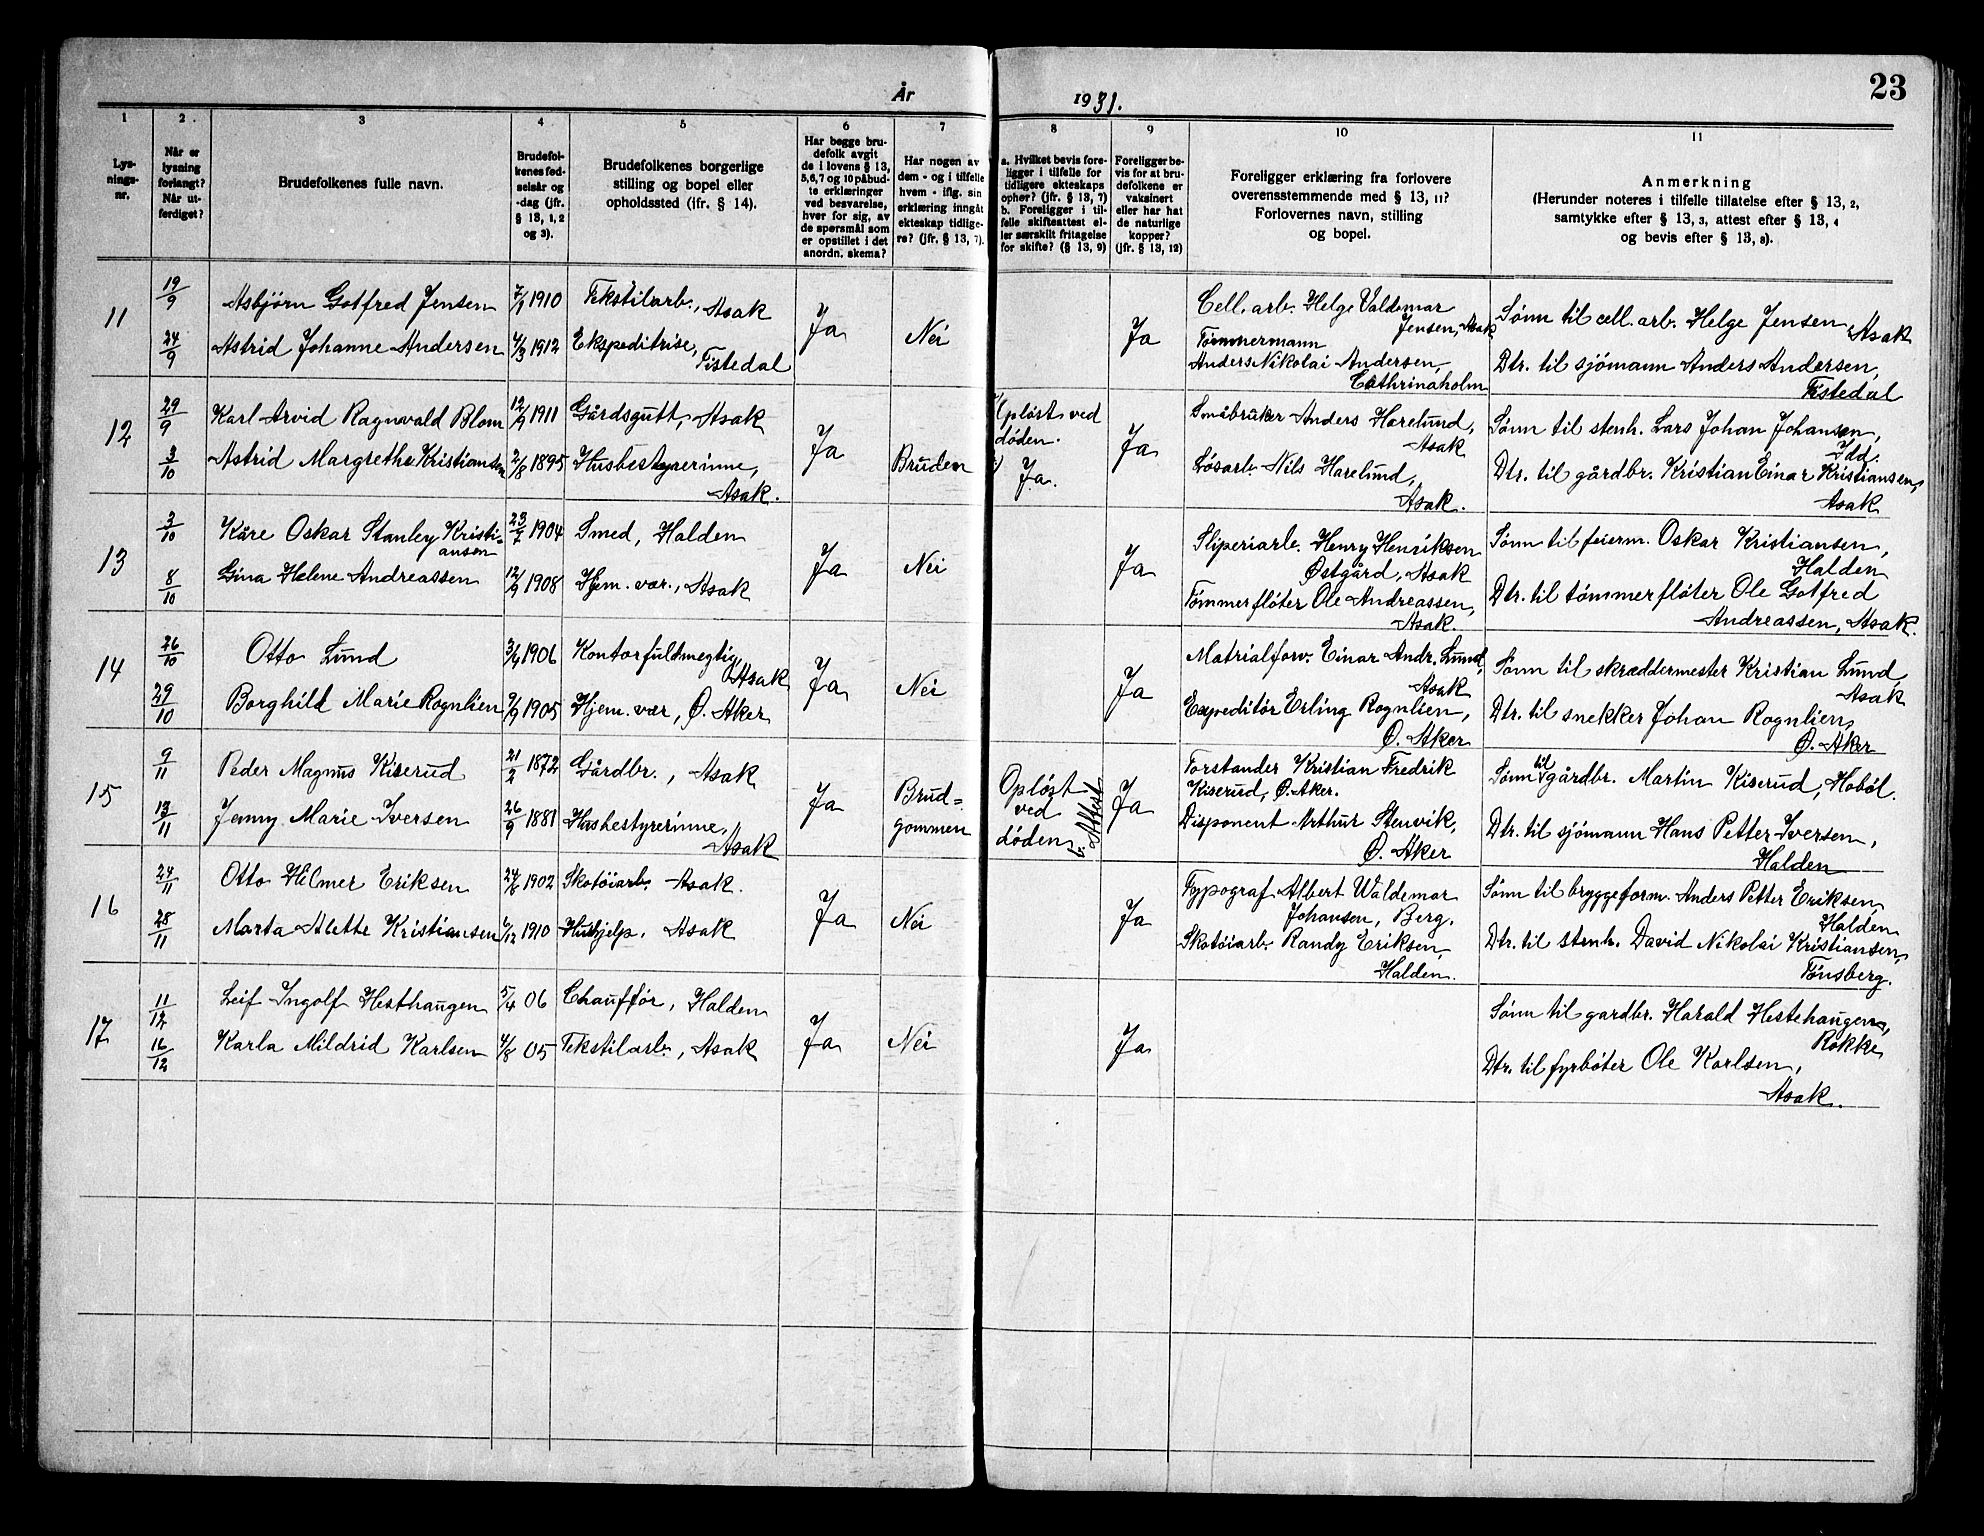 23
År 1931.
1 2 3 4 5 6 7 8 9 10 11
Lys-
nings-
nr.
Når er
lysning
forlangt?
Når ut-
ferdiget?
Brudefolkenes fulle navn.
Brudefol-
kenes fød-
selsår og
-dag (jfr.
§ 13, 1, 2
og 3).
Brudefolkenes borgerlige
stilling og bopel eller
opholdssted (ifr. § 14).
Har begge bru-
defolk avgit
de i lovens § 13,
5,6,7 og 10 påbud-
te erklæringer
ved besvarelse,
hver for sig, av
de spørsmål som
er opstillet i det
anordn. skema?
Har nogen av
dem - og i tilfelle
hvem - iflg. sin
erklæring inngåt
ekteskap tidlige-
re? (jfr. § 13, 7).
a. Hvilket bevis fore-
ligger i tilfelle for
tidligere ekteskaps
ophør? (jfr. § 13, 7)
b. Foreligger i til-
felle skifteattest el-
ler særskilt fritagelse
for skifte? (§ 13, 9)
Foreligger be-
vis for at bru-
defolkene er
vaksinert
eller har hat
de naturlige
kopper?
(jfr. § 13, 12)
Foreligger erklæring fra forlovere
overensstemmende med § 13, 11?
Forlovernes navn, stilling
og bopel.
Anmerkning
(Herunder noteres i tilfelle tillatelse efter § 13, 2,
samtykke efter § 13, 3, attest efter § 13, 4
og bevis efter § 13, 8).
11
19/9
Asbjørn Gotfred Jensen
1910
Tekstilarb., Asak
24/9
Astrid Johanne Andersen
4/3 1912
Ekspeditrise,
Tistedal
Ja
Nei
Ja
Cell. arb. Helge Valdemar
Jensen, Asak
Tømmermann
Anders Nikolai Andersen,
Cathrinaholm
Sønn til cell. arb. Helge Jensen
Asak
Dtr. til sjømann Anders Andersen,
Tistedal
12
29/9
Karl Arvid Ragnvald Blom
12/9 1911
Gårdsgutt, Asak
3/10
Astrid Margrethe Kristiansen
2/8 1895
Husbestyrerinne,
Asak.
Ja
Bruden
Opløst ved
døden.
Ja.
Ja
Småbruker Anders Harelund,
Asak
Løsarb. Nils Harelund,
Asak.
Sønn til stenh. Lars Johan Johansen,
Idd.
Dtr. til gårdbr. Kristian Einar Kristiansen,
Asak
13
3/10
Kåre Oskar Stanley Kristi-
ansen
1904
Smed, Halden
8/10
Gina Helene Andreassen
12/9 1908
Hjem. vær., Asak
Ja
Nei
Ja
Sliperiarb. Henry Henriksen
Østgård, Asak
Tømmerfløter Ole Andreassen,
Asak.
Sønn til feierm. Oskar Kristiansen,
Halden
Dtr. til tømmerfløter Ole Gotfred
Andreassen, Asak.
14
26/10
Otto Lund
1906
Kontorfuldmegtig
Asak
29/10
Borghild Marie Rognlien
9/9 1905
Hjem. vær, Ø. Aker
Ja
Nei
Ja
Matrialforv. Einar Andr. Lund,
Asak
Expeditør Erling Rognlien,
Ø. Aker
Sønn til skræddermester Kristian Lund,
Asak
Dtr. til snekker Johan Rognlien,
Ø. Aker
15
9/11
Peder Magnus Kiserud
21/2 1872
Gårdbr., Asak
13/11
Jenny Marie Iversen
26/9 1881
Husbestyrerinne,
Asak
Ja
Brud-
gommen
Opløst
ved
døden
b. Attest
Ja
Forstander Kristian Fredrik
Kiserud, Ø. Aker.
Disponent Arthur Stenvik,
Ø. Aker
Sønn til gårdbr. Martin Kiserud, Hobøl.
Dtr. til sjømann Hans Petter Iversen,
Halden
16
24/11
Otto Hilmer Eriksen
1902
Skotøiarb. Asak.
28/11
Marta Alette Kristiansen
1910
Hushjelp. Asak
Ja
Nei
Ja
Typograf Albert Waldemar
Johansen, Berg.
Skotøiarb. Randy Eriksen,
Halden.
Sønn til bryggeform. Anders Petter Eriksen,
Halden
Dtr. til stenh. David Nikolai Kristiansen,
Tønsberg.
17
11/12
Leif Ingolf Hesthaugen
5/4 06
Chauffør, Halden
16/12
Karla Mildrid Karlsen
05
Tekstilarb., Asak
Ja
Nei
Ja
Sønn til gardbr. Harald Hestehaugen,
Rokke
Dtr. til fyrbøter Ole Karlsen,
Asak.